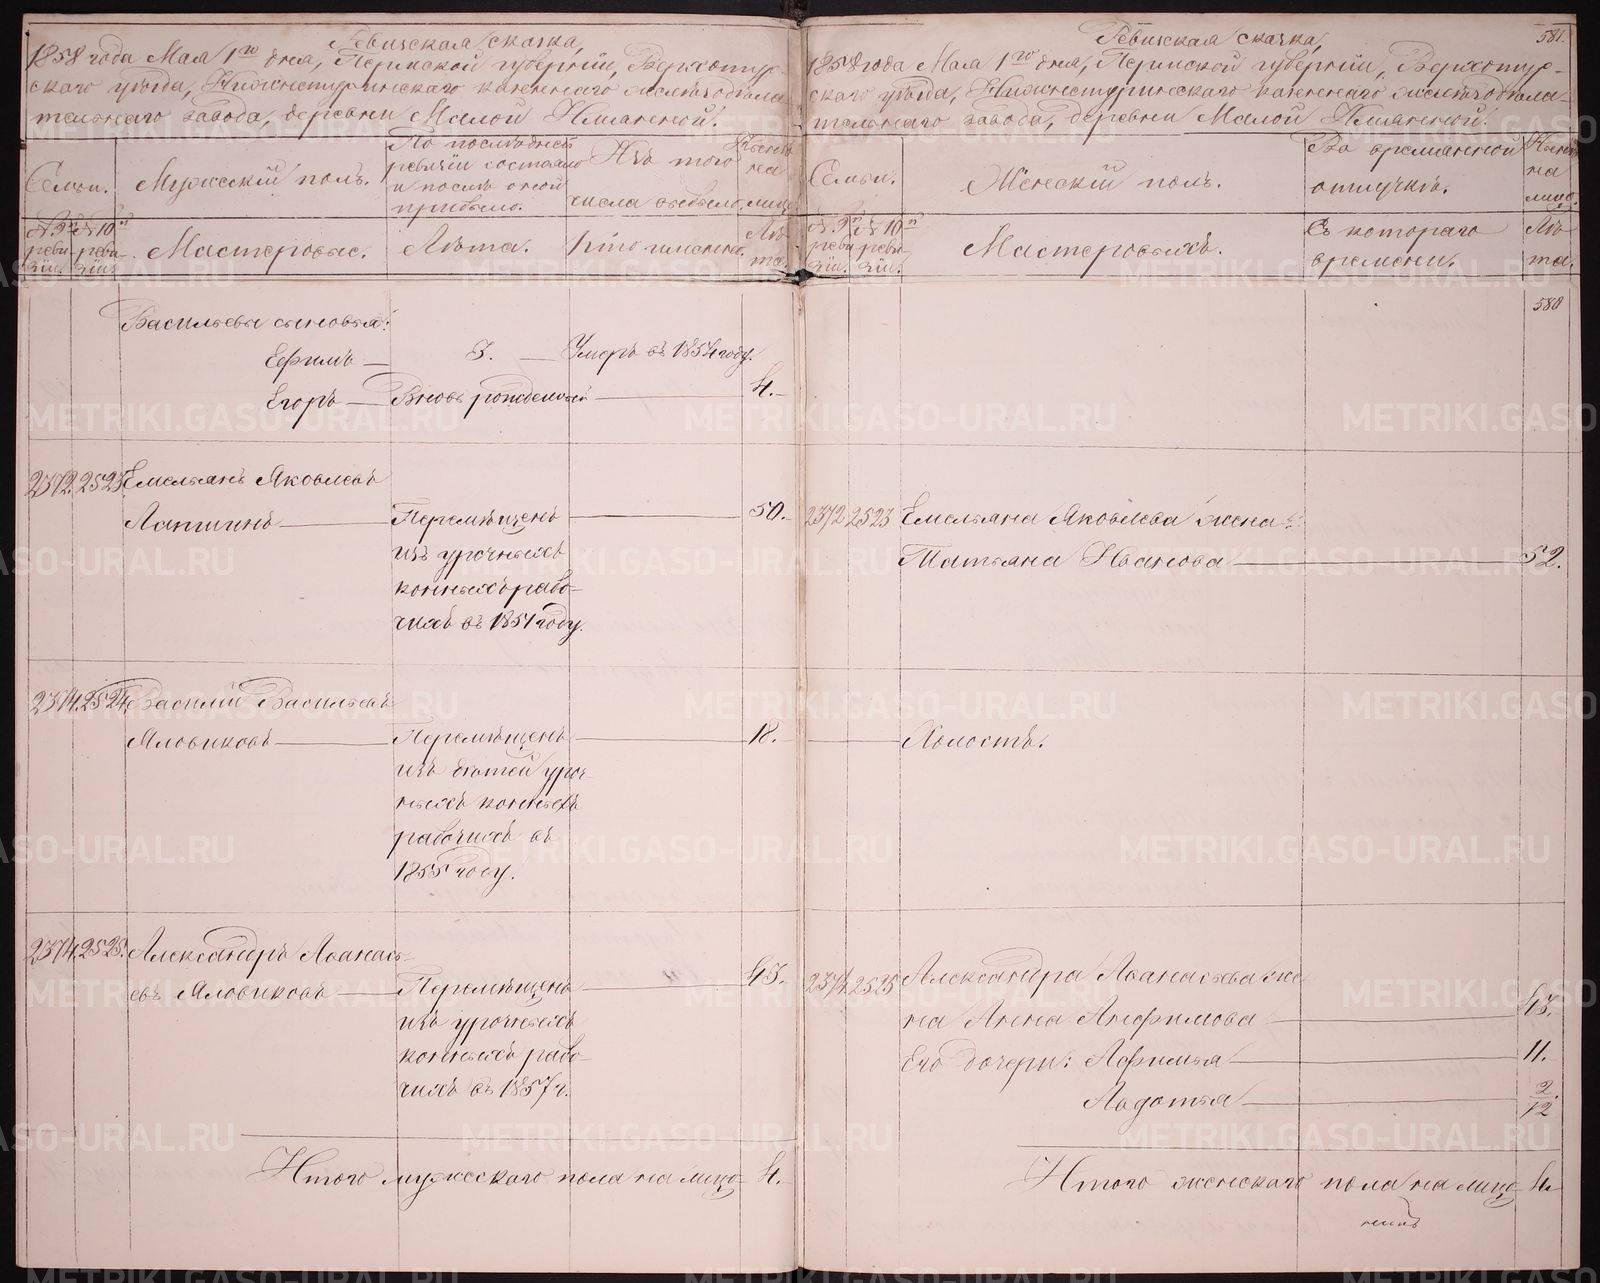 Ревизская сказка,
1858 года Мая 1го дня, Пермской губернiи, Верхотур-
скаго уѣзда, Нижнетуринскаго казеннаго желѣзодѣла-
тельнаго завода, деревни Малой Именной.
Семьи.
Мужескiй полъ.
По последней
ревизiи состояло
и послѣ оной
прибыло.
Изъ того
числа выбыло.
Нынѣ
на
лицо
№ 9й
реви-
зiи.
№ 10й
реви-
зiи.
Мастеровые.
Лѣта.
Кто именно.
Лѣ-
та.
Васильевы сыновья:
Ефимъ — 3. — Умеръ въ 1854 году.
Егоръ — Вновь рожденный — 4.
2372. 2523. Емельянъ Яковлевъ
Лапшинъ — Перемѣщенъ — 50.
изъ урочныхъ
конныхъ рабо-
чихъ въ 1851 году.
2374. 2524. Василiй Васильевъ
Яловиковъ — Перемѣщенъ — 18.
изъ дѣтей уроч-
ныхъ конныхъ
рабочихъ въ
1855 году.
2374. 2525. Александръ Аѳанась-
евъ Яловиковъ — Перемѣщенъ — 43.
изъ урочныхъ
конныхъ рабо-
чихъ въ 1857 г.
Итого мужескаго пола на лицо 4.
581.
Ревизская сказка,
1858 года Мая 1го дня, Пермской губернiи, Верхотур-
скаго уѣзда, Нижнетуринскаго казеннаго желѣзодѣла-
тельнаго завода, деревни Малой Именной.
Семьи.
Женскiй полъ.
Во временной
отлучкѣ.
Нынѣ
на
лицо.
№ 9й
реви-
зiи.
№ 10й
реви-
зiи.
Мастеровыхъ.
Съ котораго
времени.
Лѣ-
та.
580
2372 2523 Емельяна Яковлева жена
Татьяна Иванова — 52.
Холостъ.
2374 2525 Александра Аѳанасьева же-
на Анна Анфимова — 43.
Его дочери: Афимья — 11.
Авдотья — 2/12
Итого женскаго пола на лицо 4.
METRIKI.GASO-URAL.RU